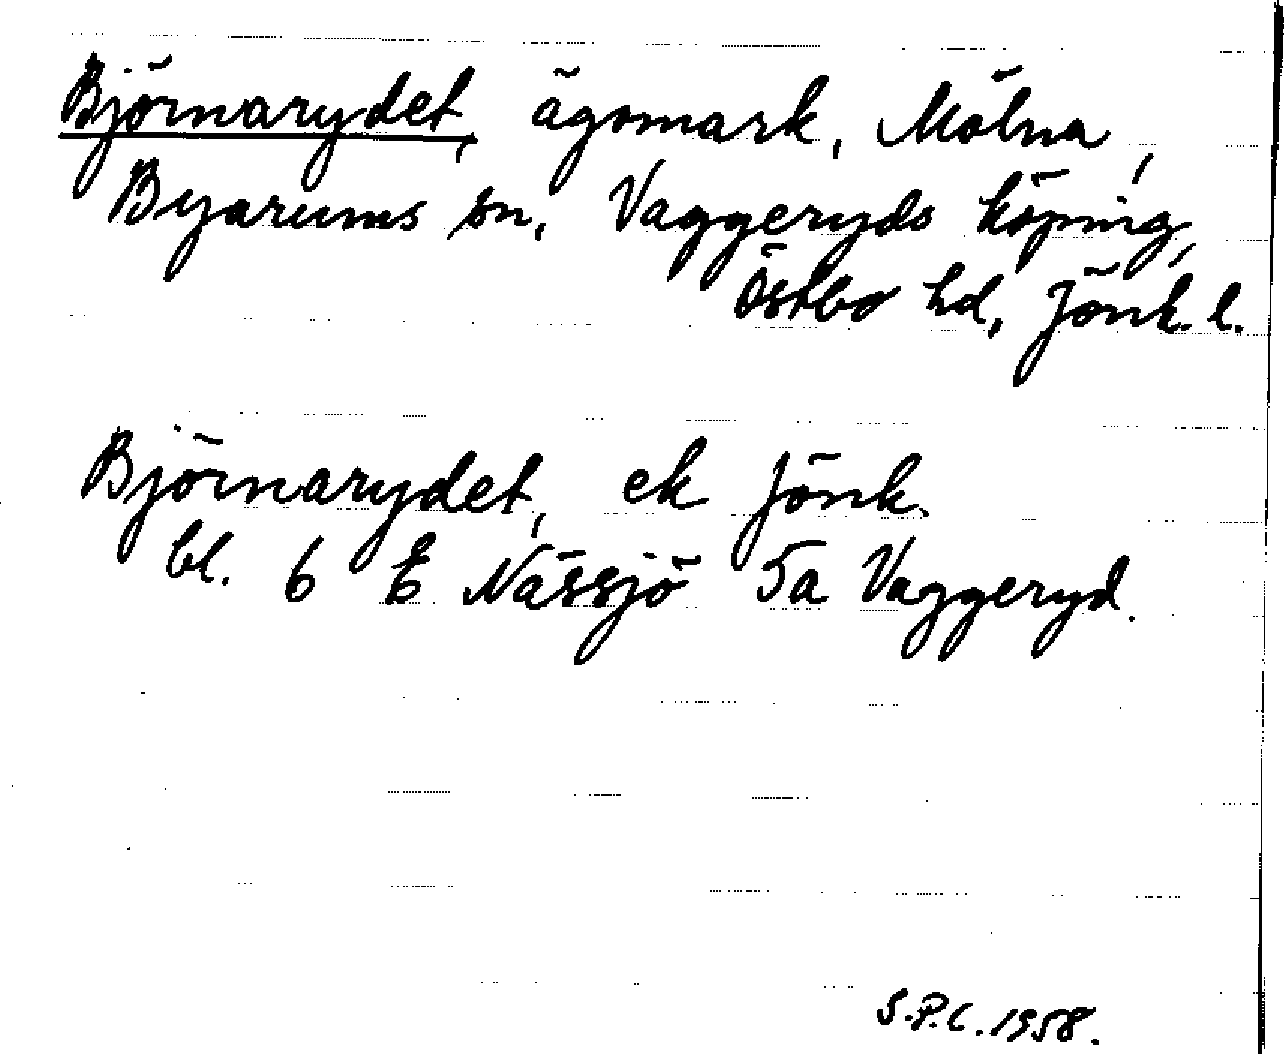 Björnarydet, ägomark, Mölna,
Byarums sn, Vaggeryds köping,
Östbo hd, Jönk. l.
Björnarydet, ek Jönk.
bl. 6 E Nässjö 5a Vaggeryd.
S.P.C. 1958.